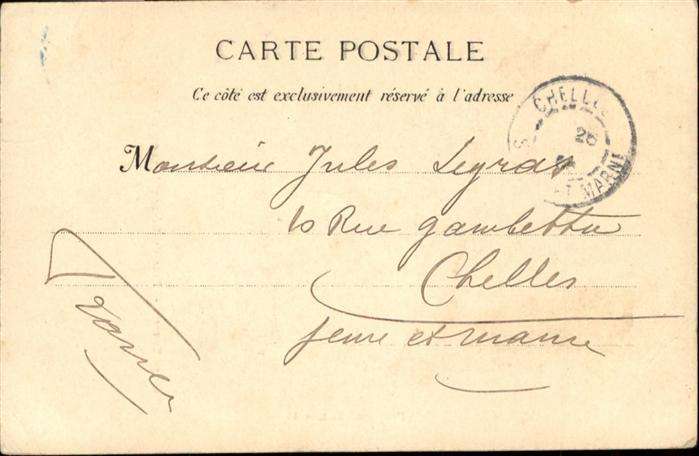 CARTE POSTALE
Ce côté est exclusivement réservé à l'adresse
CHELLES
25
S ET MARNE
Monsieur Jules Legras
10 Rue Gambetta
Chelles
Seine et Marne